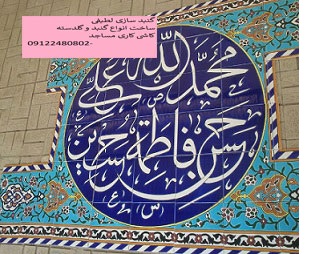 گنبد سازی لطیفی
ساخت انواع گنبد و گلدسته
کاشی کاری مساجد
09122480802-
الله
محمد علی
حسن فاطمة حسین
(ص) (ع)
(س) (ع)